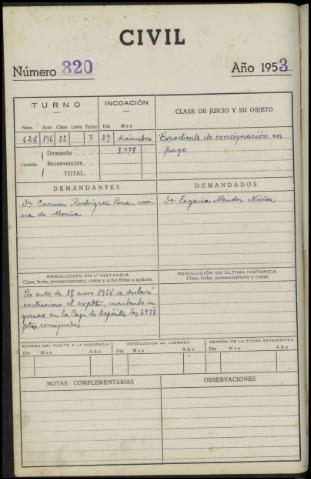 CIVIL
Número 320 Año 1953
TURNO INCOACIÓN CLASE DE JUICIO Y SU OBJETO
Núm. Arto Clase Letra Turno Día Mes
628 196 22 7 29 diciembre Expediente de consignación en
Cuantía Demanda 3.978 pago
Reconvención
TOTAL
DEMANDANTES DEMANDADOS
Dª Carmen Rodríguez Pena, veci- Dª Eugenia Méndez Núñez
na de Moaña
RESOLUCIÓN EN 1ª INSTANCIA RESOLUCIÓN DE ÚLTIMA INSTANCIA
Clase, fecha, pronunciamiento, costas y si fué firme o apelada. Clase, fecha, pronunciamiento y costas
Por auto de 18 enero 1954 se declaró
contencioso el expte, mandando in-
gresar en la Caja de Depósitos las 3.978
ptas consignadas.
REMESA DEL PLEITO A LA AUDIENCIA DEVOLUCIÓN AL JUZGADO REMESA DE LA FICHA ESTADÍSTICA
Día Mes Año Día Mes Año Día Mes Año
NOTAS COMPLEMENTARIAS OBSERVACIONES